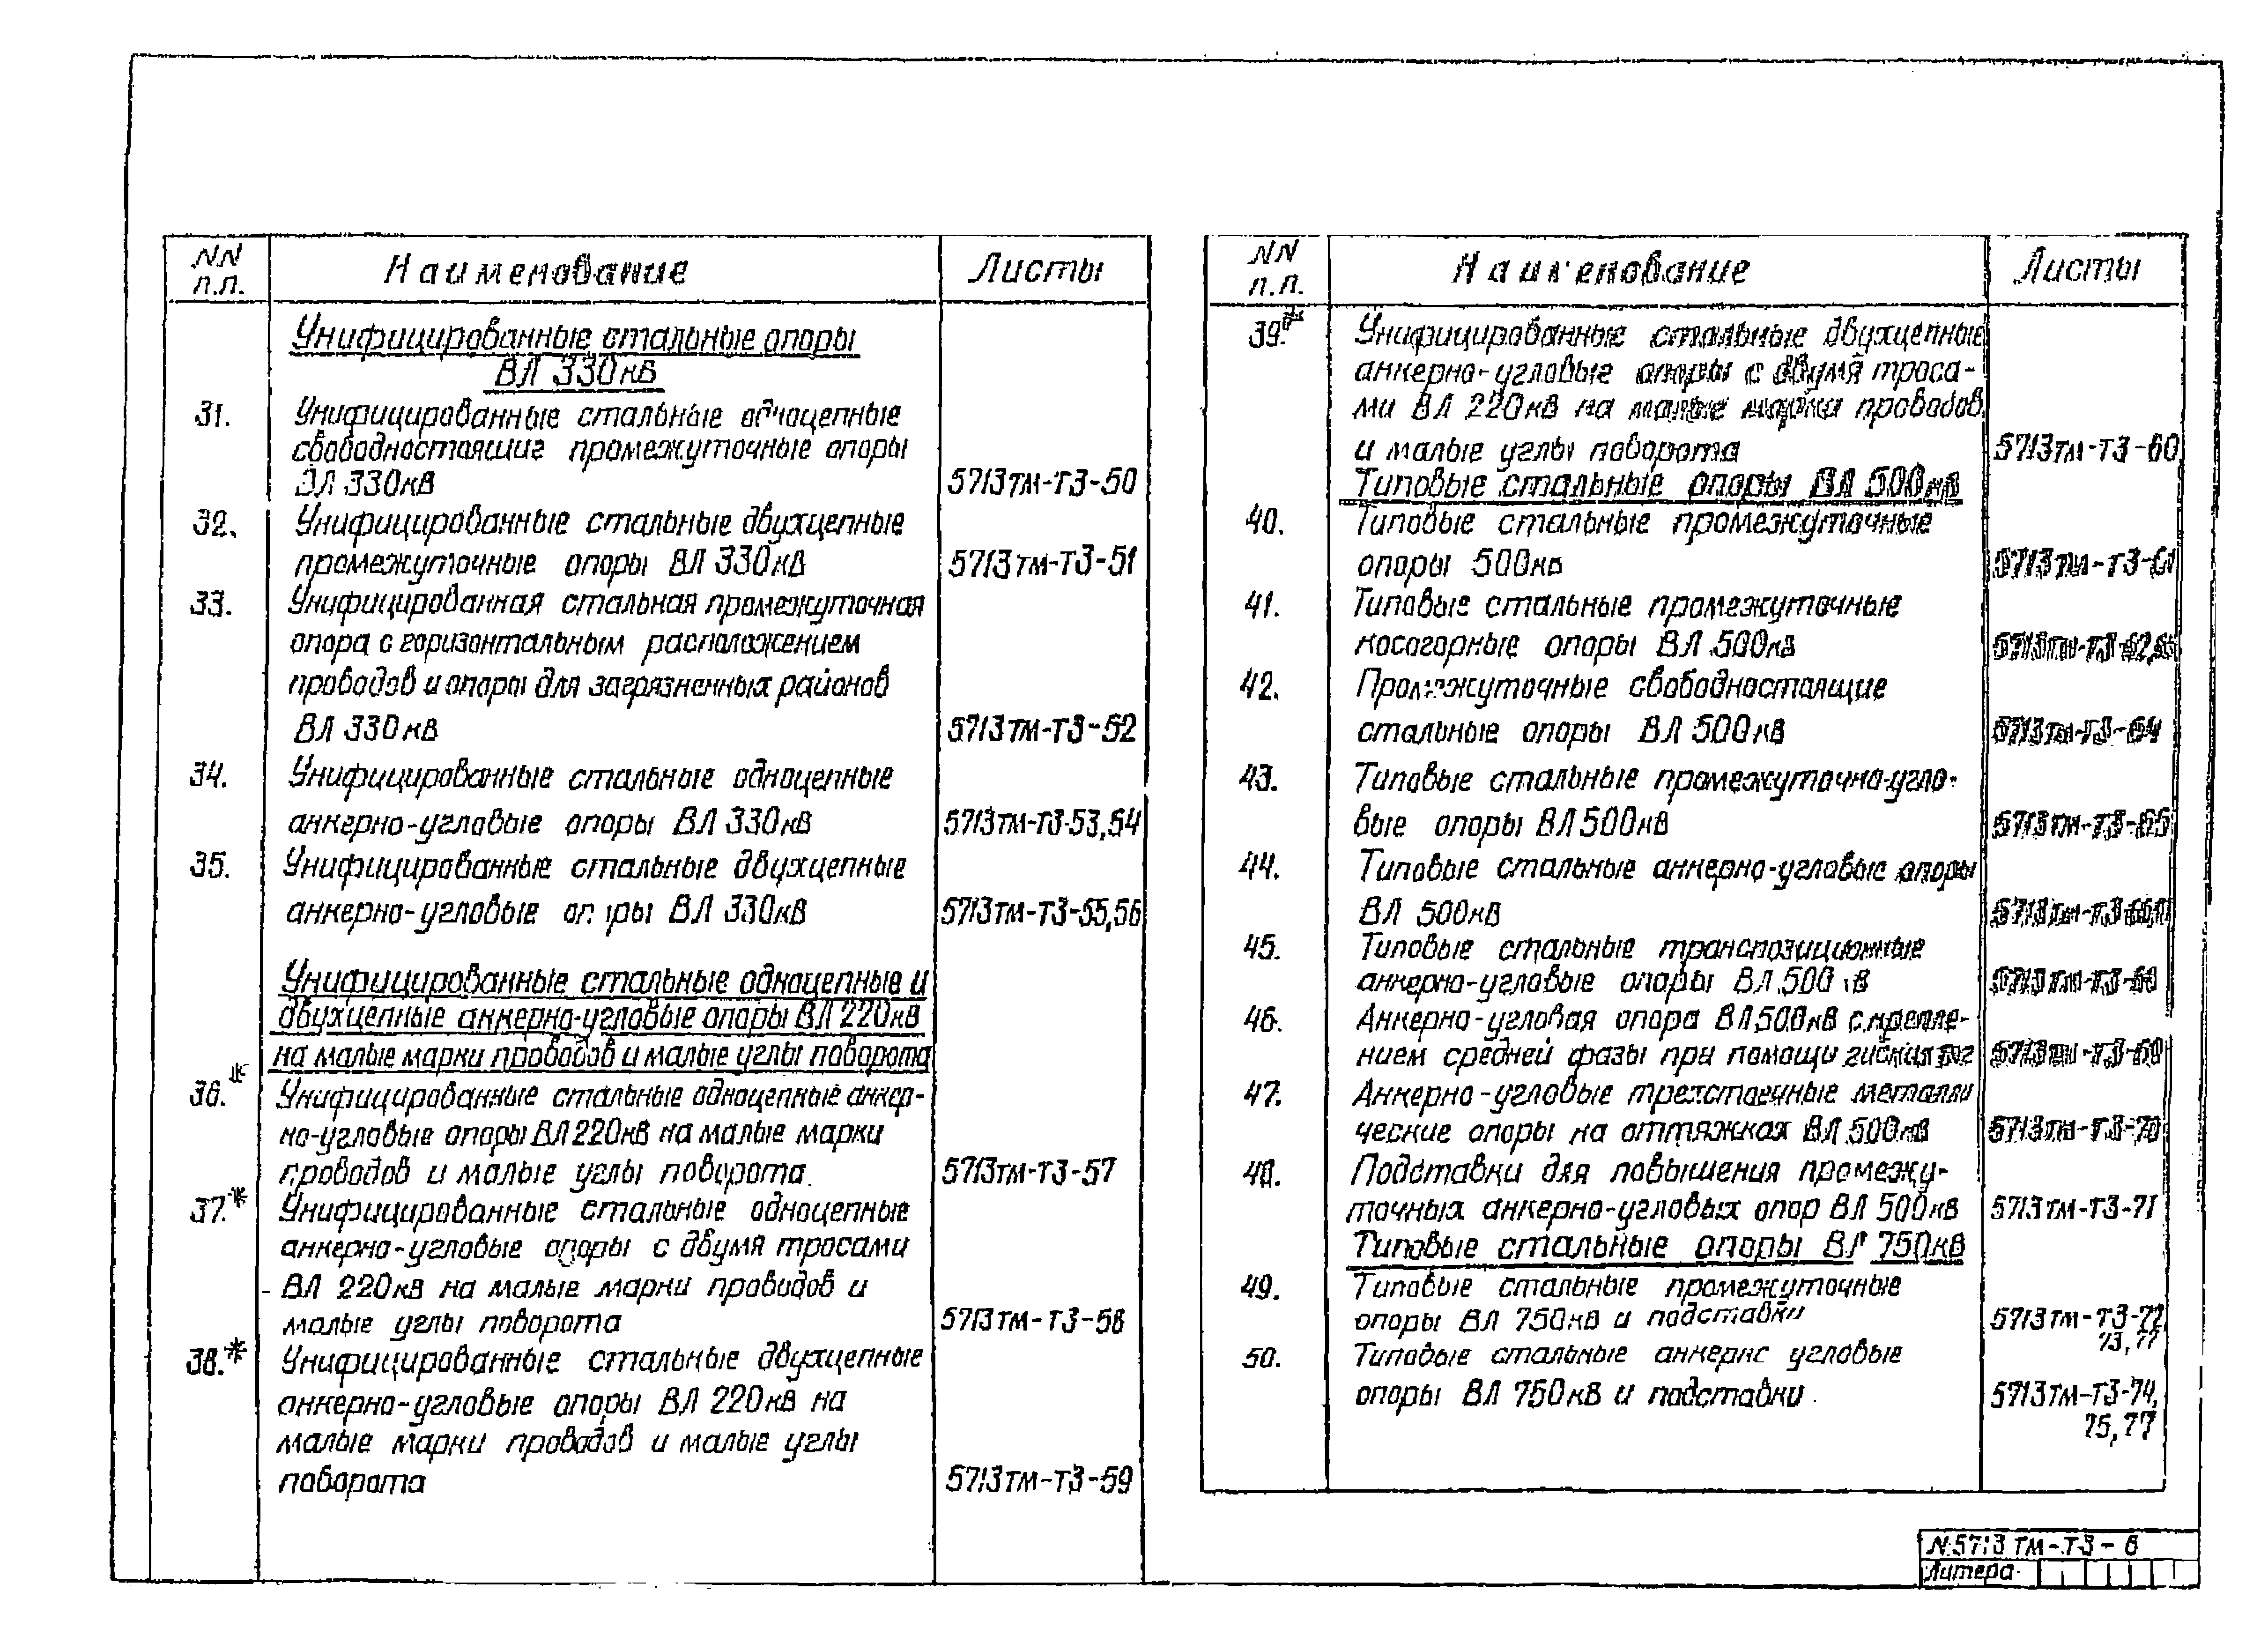 NN
п.п.
Наименование
Листы
Унифицированные стальные опоры
ВЛ 330кВ
31.
Унифицированные стальные одноцепные
свободностоящие промежуточные опоры
ВЛ 330кВ
5713тм-т3-50
32.
Унифицированные стальные двухцепные
промежуточные опоры ВЛ 330кВ
5713тм-т3-51
33.
Унифицированная стальная промежуточная
опора с горизонтальным расположением
проводов и опоры для загрязненных районов
ВЛ 330кВ
5713тм-т3-52
34.
Унифицированные стальные одноцепные
анкерно-угловые опоры ВЛ 330кВ
5713тм-т3-53,54
35.
Унифицированные стальные двухцепные
анкерно-угловые опоры ВЛ 330кВ
5713тм-т3-55,56
Унифицированные стальные одноцепные и
двухцепные анкерно-угловые опоры ВЛ 220кВ
на малые марки проводов и малые углы поворота
36.*
Унифицированные стальные одноцепные анкер-
но-угловые опоры ВЛ 220кВ на малые марки
проводов и малые углы поворота.
5713тм-т3-57
37.*
Унифицированные стальные одноцепные
анкерно-угловые опоры с двумя тросами
ВЛ 220кВ на малые марки проводов и
малые углы поворота
5713тм-т3-58
38.*
Унифицированные стальные двухцепные
анкерно-угловые опоры ВЛ 220кВ на
малые марки проводов и малые углы
поворота
5713тм-т3-59
NN
п.п.
Наименование
Листы
39.*
Унифицированные стальные двухцепные
анкерно-угловые опоры с двумя троса-
ми ВЛ 220кВ на малые марки проводов
и малые углы поворота
5713тм-т3-60
Типовые стальные опоры ВЛ 500кВ
40.
Типовые стальные промежуточные
опоры 500кВ
5713тм-т3-61
41.
Типовые стальные промежуточные
косогорные опоры ВЛ 500кВ
42.
Промежуточные свободностоящие
стальные опоры ВЛ 500кВ
5713тм-т3-64
43.
Типовые стальные промежуточно-угло-
вые опоры ВЛ 500кВ
5713тм-т3-65
44.
Типовые стальные анкерно-угловые опоры
ВЛ 500кВ
45.
Типовые стальные транспозиционные
анкерно-угловые опоры ВЛ 500кВ
46.
Анкерно-угловая опора ВЛ 500кВ с крепле-
нием средней фазы при помощи
5713тм-т3-69
47.
Анкерно-угловые трехстоечные металли
ческие опоры на оттяжках ВЛ 500кВ
5713тм-т3-70
48.
Подставки для повышения промежу-
точных анкерно-угловых опор ВЛ 500кВ
5713тм-т3-71
Типовые стальные опоры ВЛ 750кВ
49.
Типовые стальные промежуточные
опоры ВЛ 750кВ и подставки
5713тм-т3-72,
73,77
50.
Типовые стальные анкерно угловые
опоры ВЛ 750кВ и подставки.
5713тм-т3-74,
75,77
N 5713 тм-т3-6
Литера